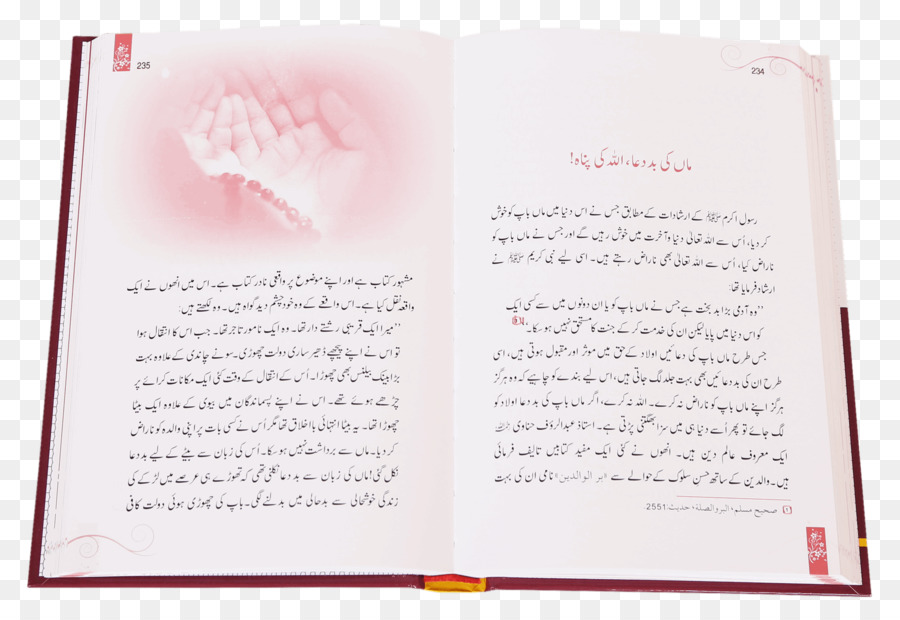 234
ماں کی بددعا، اللہ کی پناہ!
رسول اکرم ﷺ کے ارشادات کے مطابق جس نے اس دنیا میں ماں باپ کو خوش
کر دیا، اُس سے اللہ تعالیٰ دنیا و آخرت میں خوش رہیں گے اور جس نے ماں باپ کو
ناراض کیا، اُس سے اللہ تعالیٰ بھی ناراض رہتے ہیں۔ اسی لیے نبی کریم ﷺ نے
ارشاد فرمایا تھا:
”وہ آدمی بڑا بد بخت ہے جس نے ماں باپ کو یا ان دونوں میں سے کسی ایک
کو اس دنیا میں پایا لیکن ان کی خدمت کر کے جنت کا مستحق نہیں ہو سکا۔“
جس طرح ماں باپ کی دعائیں اولاد کے حق میں موثر اور مقبول ہوتی ہیں، اسی
طرح ان کی بددعائیں بھی بہت جلد لگ جاتی ہیں، اس لیے بندے کو چاہیے کہ وہ ہرگز
ہرگز اپنے ماں باپ کو ناراض نہ کرے۔ اللہ نہ کرے، اگر ماں باپ کی بددعا اولاد کو
لگ جائے تو پھر اُسے دنیا ہی میں سزا بھگتنی پڑتی ہے۔ استاذ عبدالرؤف حناوی رحمہ اللہ
ایک معروف عالم دین ہیں۔ انھوں نے کئی ایک مفید کتابیں تالیف فرمائی
ہیں۔ والدین کے ساتھ حسن سلوک کے حوالے سے «بر الوالدین» نامی ان کی بہت
① صحیح مسلم، البر والصلۃ، حدیث: 2551.
235
مشہور کتاب ہے اور اپنے موضوع پر واقعی نادر کتاب ہے۔ اس میں انھوں نے ایک
واقعہ نقل کیا ہے۔ اس واقعے کے وہ خود چشم دید گواہ ہیں۔ وہ لکھتے ہیں:
”میرا ایک قریبی رشتے دار تھا۔ وہ ایک نامور تاجر تھا۔ جب اس کا انتقال ہوا
تو اس نے اپنے پیچھے ڈھیر ساری دولت چھوڑی۔ سونے چاندی کے علاوہ بہت
بڑا بینک بیلنس بھی چھوڑا۔ اُس کے انتقال کے وقت کئی ایک مکانات کرائے پر
چڑھے ہوئے تھے۔ اس نے اپنے پسماندگان میں بیوی کے علاوہ ایک بیٹا
چھوڑا تھا۔ یہ بیٹا انتہائی با اخلاق تھا مگر اُس نے کسی بات پر اپنی والدہ کو ناراض
کر دیا۔ ماں سے برداشت نہیں ہو سکا۔ اُس کی زبان سے بیٹے کے لیے بددعا
نکل گئی! ماں کی زبان سے بددعا نکلنی تھی کہ تھوڑے ہی عرصے میں لڑکے کی
زندگی خوشحالی سے بدحالی میں بدلنے لگی۔ باپ کی چھوڑی ہوئی دولت کافی